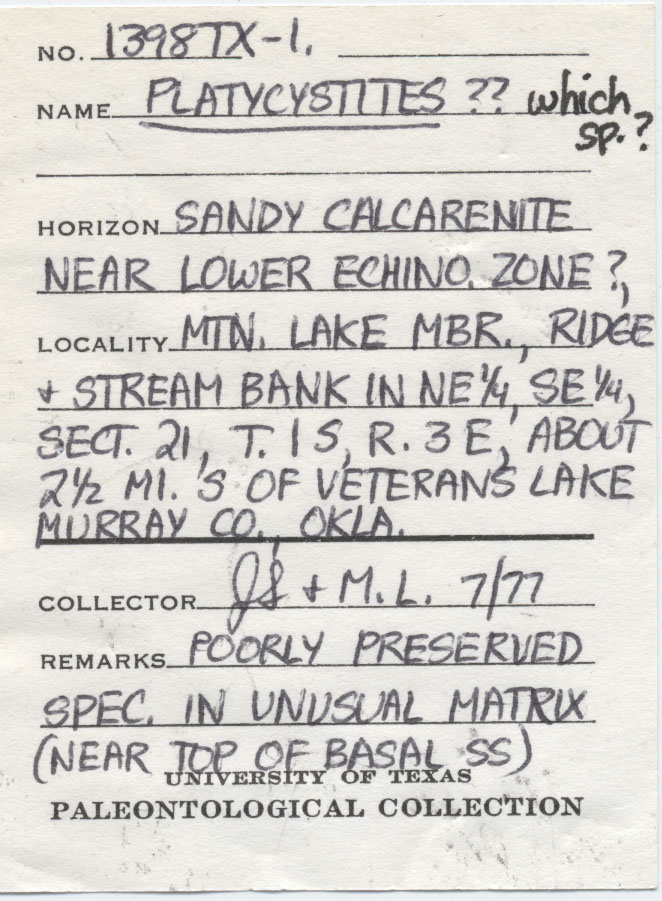 NO. 1398TX-1.
NAME PLATYCYSTITES ?? which
sp.?
HORIZON SANDY CALCARENITE
NEAR LOWER ECHINO. ZONE ?,
LOCALITY MTN. LAKE MBR., RIDGE
+ STREAM BANK IN NE 1/4, SE 1/4,
SECT. 21, T. 1 S, R. 3 E, ABOUT
2 1/2 MI. S OF VETERANS LAKE
MURRAY CO., OKLA.
COLLECTOR JS + M.L. 7/77
REMARKS POORLY PRESERVED
SPEC. IN UNUSUAL MATRIX
(NEAR TOP OF BASAL SS)
UNIVERSITY OF TEXAS
PALEONTOLOGICAL COLLECTION